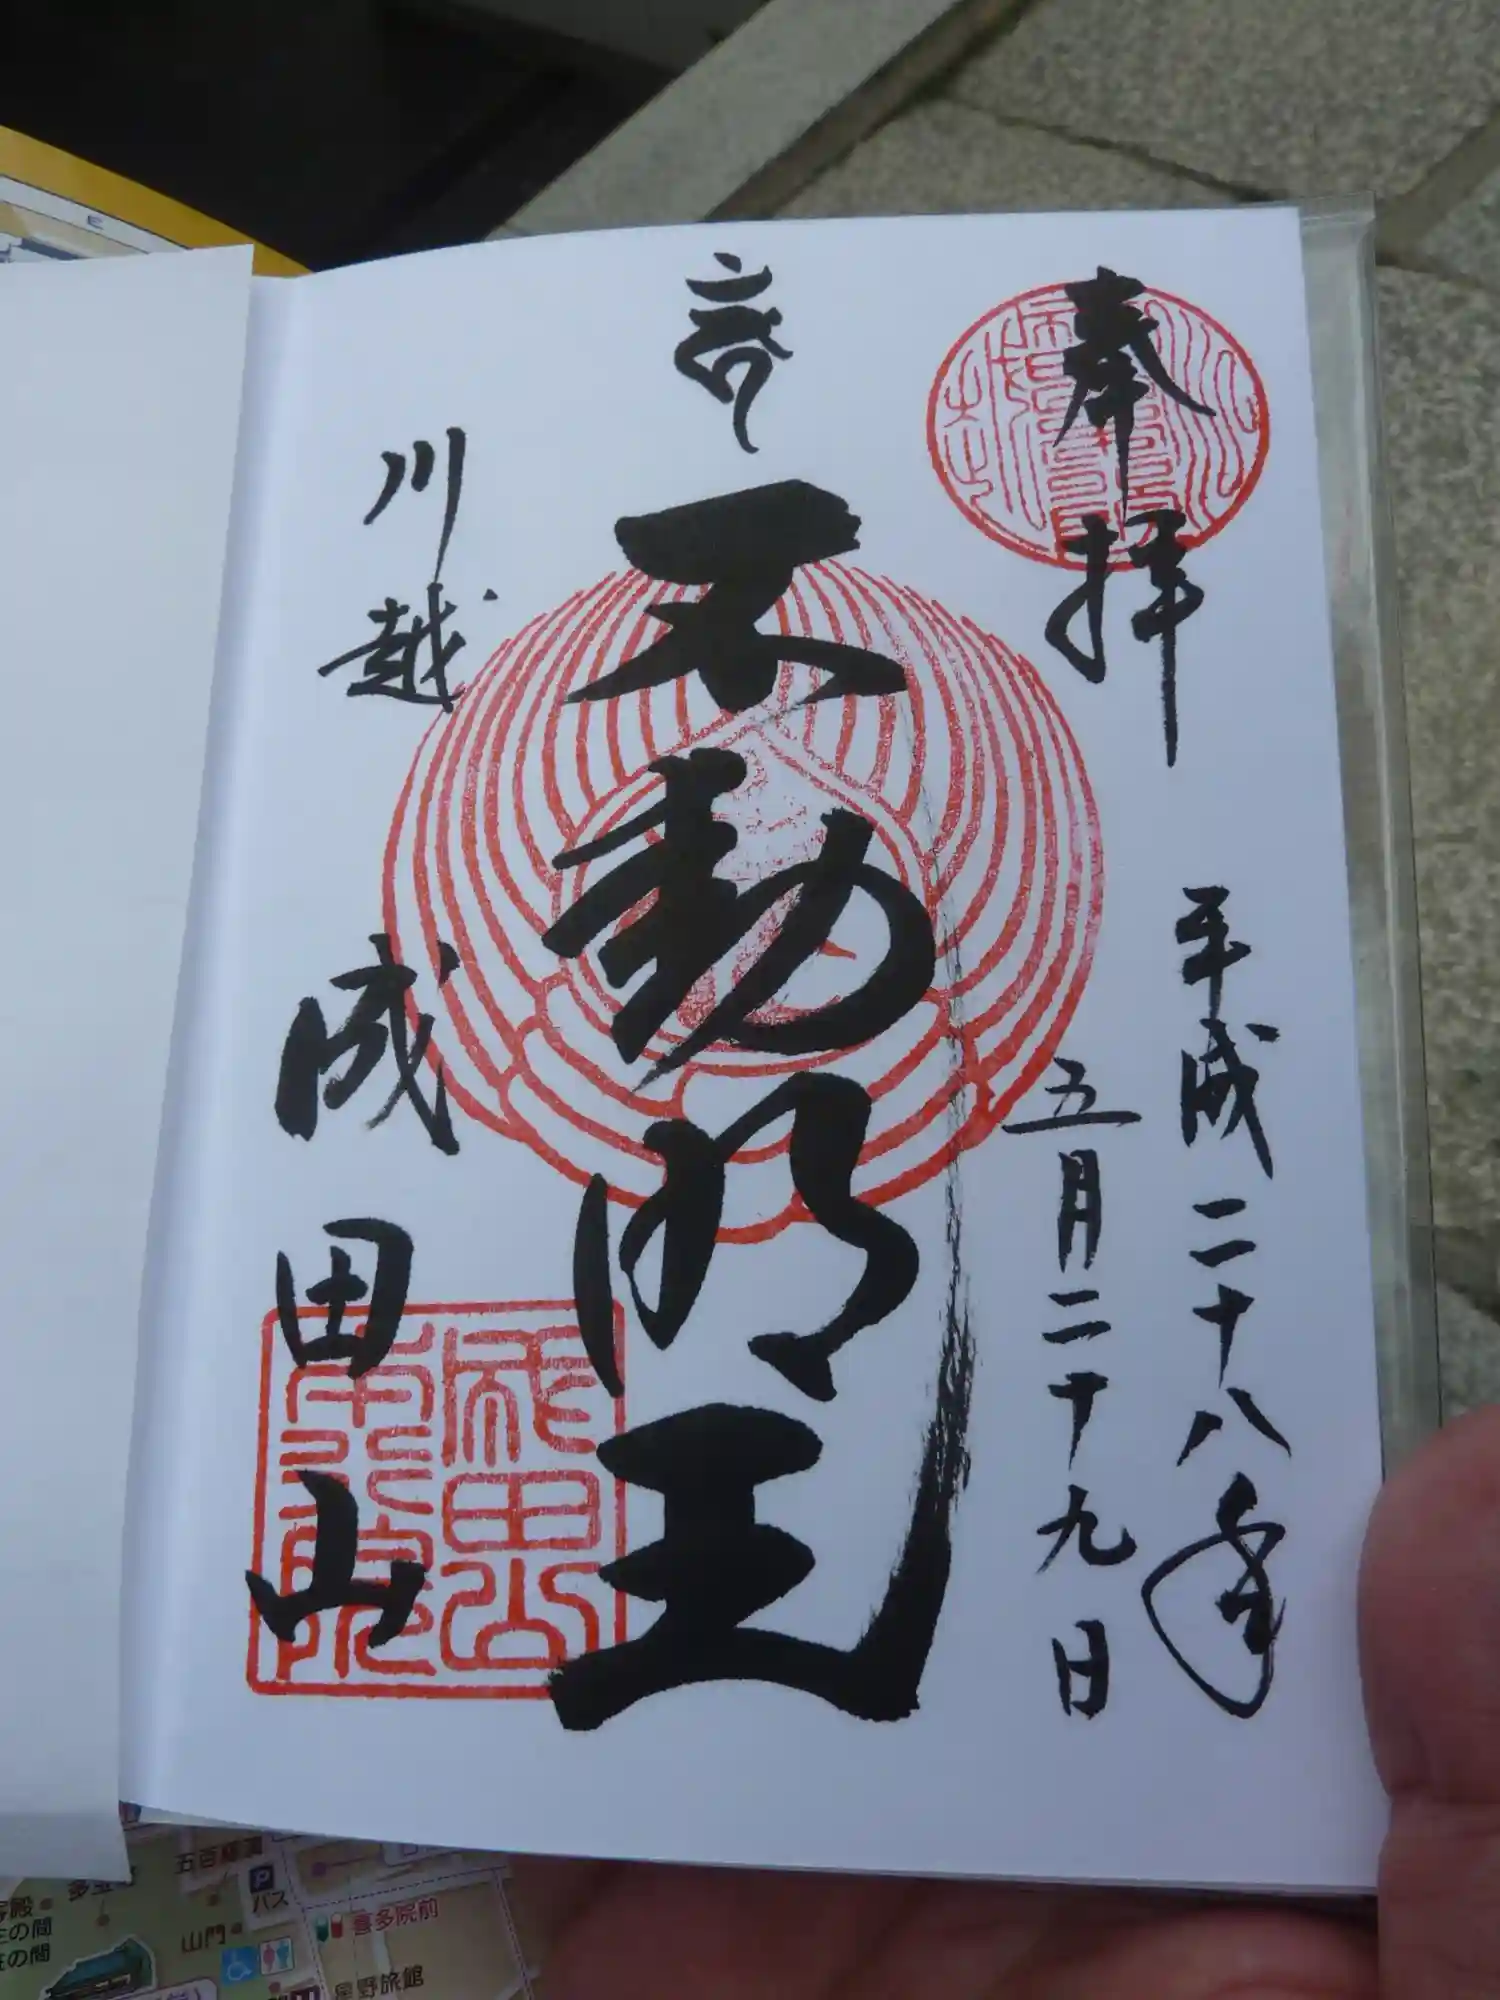 奉拝
平成二十八年
五月二十九日
不動明王
川越
成田山
成田山
本行院
五百羅漢
P
バス
山門
喜多院前
星野旅館
の間
の間